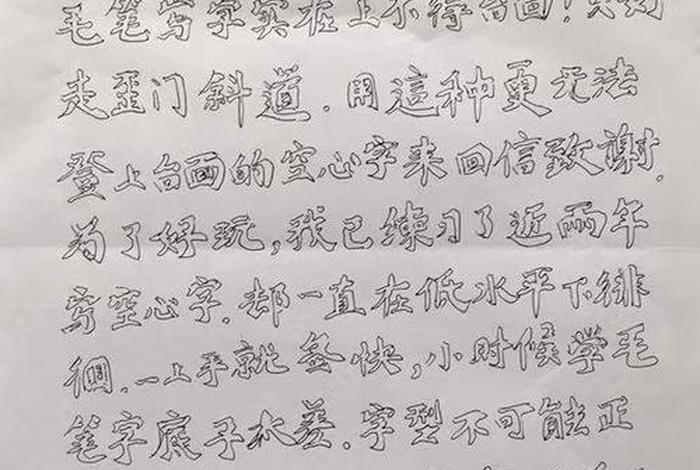 毛笔写字实在上不得台面！只好
走歪门斜道．用這种更无法
登上台面的空心字来回信致谢．
为了好玩，我已练习了近两年
写空心字．却一直在低水平下徘
徊．一上手就多快，小时候学毛
笔字底子太差．字型不可能正